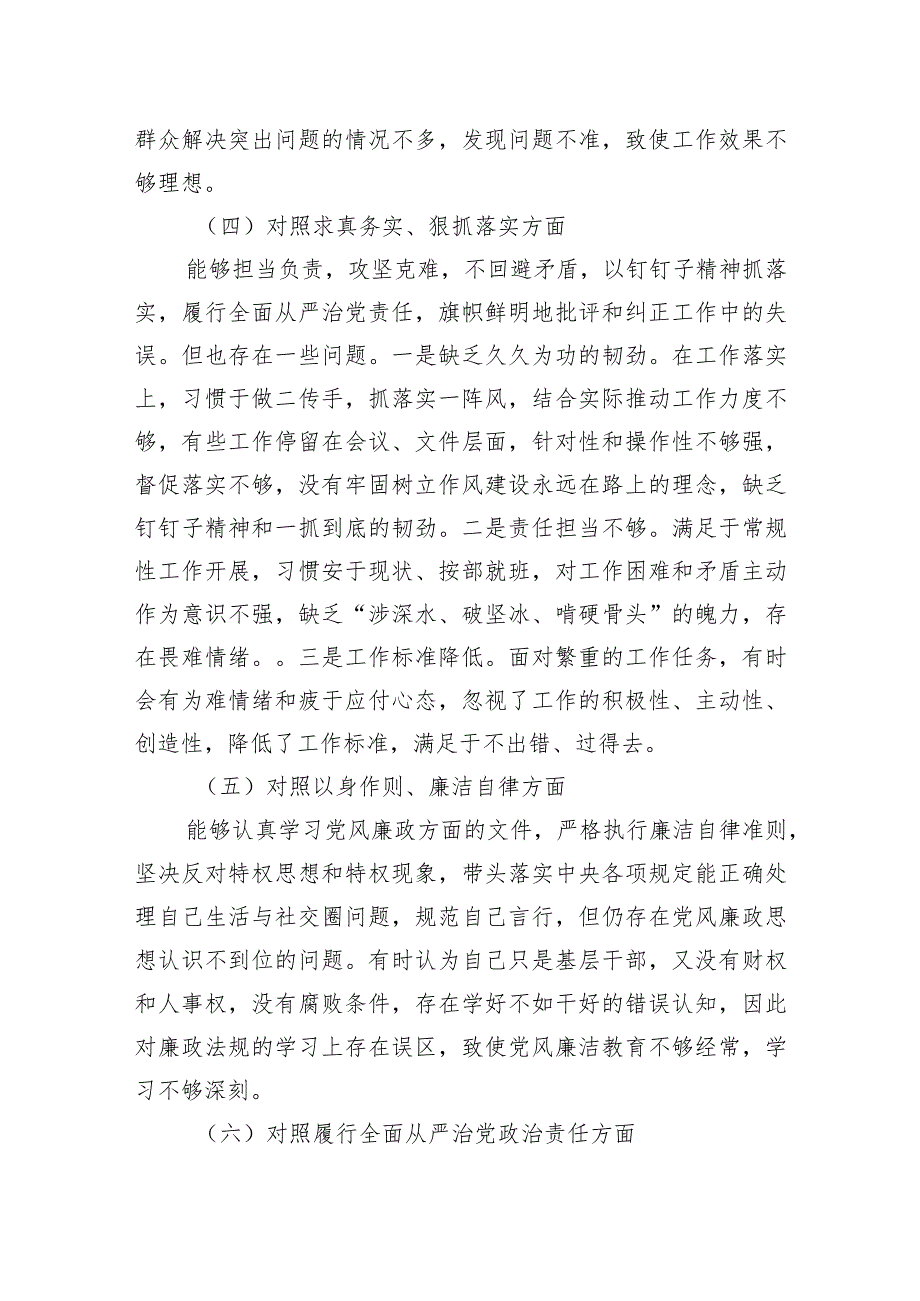 群众解决突出问题的情况不多，发现问题不准，致使工作效果不
够理想。
（四）对照求真务实、狠抓落实方面
能够担当负责，攻坚克难，不回避矛盾，以钉钉子精神抓落
实，履行全面从严治党责任，旗帜鲜明地批评和纠正工作中的失
误。但也存在一些问题。一是缺乏久久为功的韧劲。在工作落实
上，习惯于做二传手，抓落实一阵风，结合实际推动工作力度不
够，有些工作停留在会议、文件层面，针对性和操作性不够强，
督促落实不够，没有牢固树立作风建设永远在路上的理念，缺乏
钉钉子精神和一抓到底的韧劲。二是责任担当不够。满足于常规
性工作开展，习惯安于现状、按部就班，对工作困难和矛盾主动
作为意识不强，缺乏“涉深水、破坚冰、啃硬骨头”的魄力，存
在畏难情绪。。三是工作标准降低。面对繁重的工作任务，有时
会有为难情绪和疲于应付心态，忽视了工作的积极性、主动性、
创造性，降低了工作标准，满足于不出错、过得去。
（五）对照以身作则、廉洁自律方面
能够认真学习党风廉政方面的文件，严格执行廉洁自律准则，
坚决反对特权思想和特权现象，带头落实中央各项规定能正确处
理自己生活与社交圈问题，规范自己言行，但仍存在党风廉政思
想认识不到位的问题。有时认为自己只是基层干部，又没有财权
和人事权，没有腐败条件，存在学好不如干好的错误认知，因此
对廉政法规的学习上存在误区，致使党风廉洁教育不够经常，学
习不够深刻。
（六）对照履行全面从严治党政治责任方面